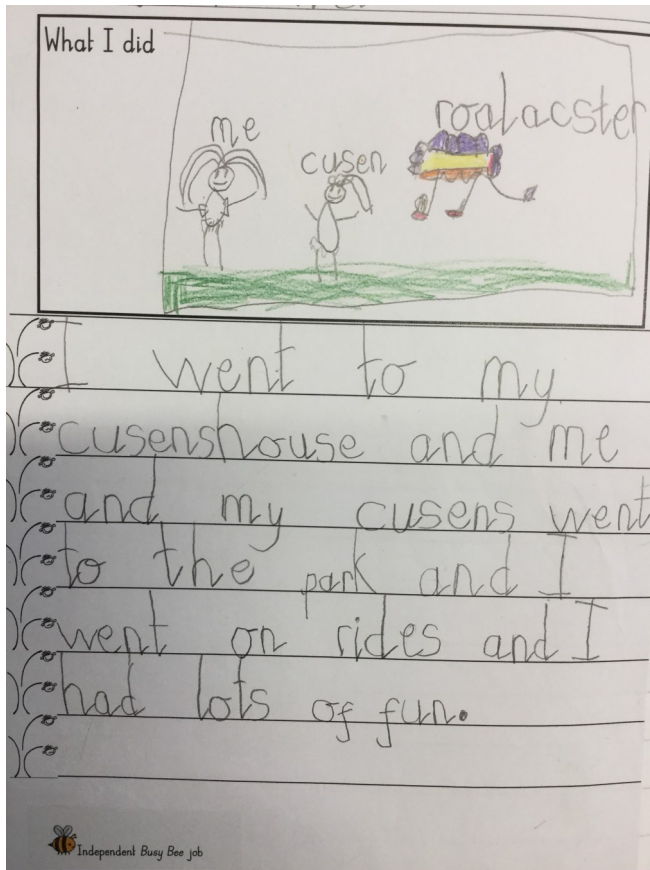 What I did
me
cusen
roalacster
I went to my
cusenshouse and me
and my cusens went
to the park and I
went on rides and I
had lots of fun.
Independent Busy Bee job